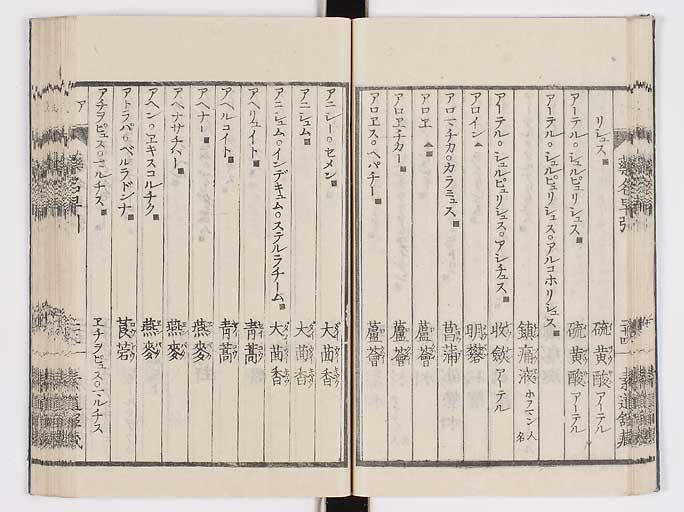 リシュス 硫黄酸アーテル
アーテル。シュルピュリシュス 硫黄酸アーテル
アーテル。シュルピュリシュス。アルコホリシュス 鎮痛液 ホフマン人名
アーテル。シュルピュリシュス。アシチュス 收斂アーテル
アロイン 明礬
アロマチカ。カラミュス 菖蒲
アロヱ 蘆薈
アロヱチカー 蘆薈
アロヱス。ヘパチー 蘆薈
アニシー。セメン 大茴香
アニシュム 大茴香
アニシュム。インデキュム。ステルラチーム 大茴香
アベリュイト 青蒿
アベルコイト 青蒿
アヘナー 燕麥
アヘナサチハー 燕麥
アヘン。ヱキスコルチク 燕麥
アトラパ。ベルラドンナ 莨菪
アチヲピュス。ミネルチス ヱチヲピュス。ミネルチス
ア
藥名早引